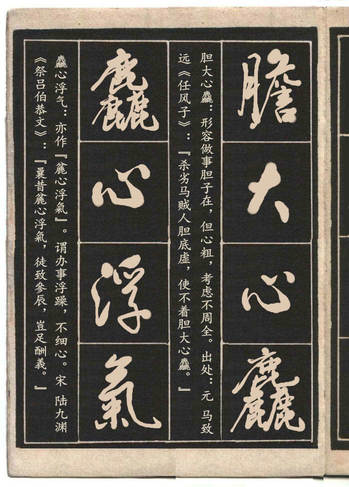 膽大心麤
胆大心麤：形容做事胆子在，但心粗，考虑不周全。出处：元 马致
远《任风子》：『杀劣马贼人胆底虚，使不着胆大心麤。』
麤心浮氣
麤心浮气：亦作『麄心浮氣』。谓办事浮躁，不细心。宋 陆九渊
《祭吕伯恭文》：『曩昔麄心浮氣，徒致參辰，豈足酬義。』